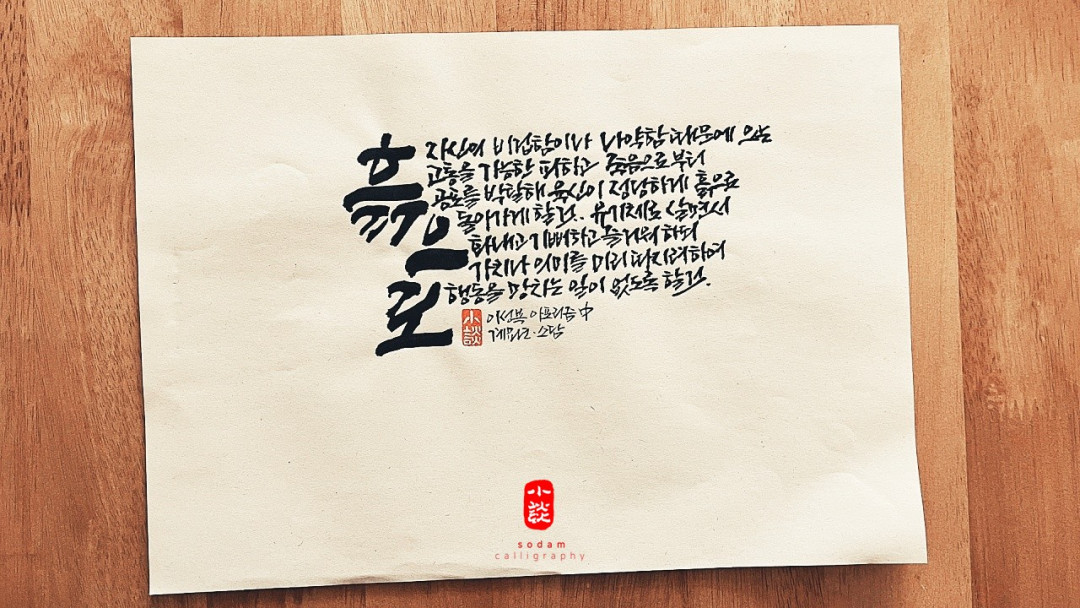 흙으로
자신의 비겁함이나 나약함 때문에 오는
고통을 가능한 피하고 죽음으로부터
공포를 박탈해 육신이 정당하게 흙으로
돌아가게 할 것. 유기체로 살면서
화내고 기뻐하고 즐거워하되
가치나 의미를 미리 따지려하여
행동을 망치는 일이 없도록 할 것.
小談 아포리즘 中
소담
小談
sodam
calligraphy